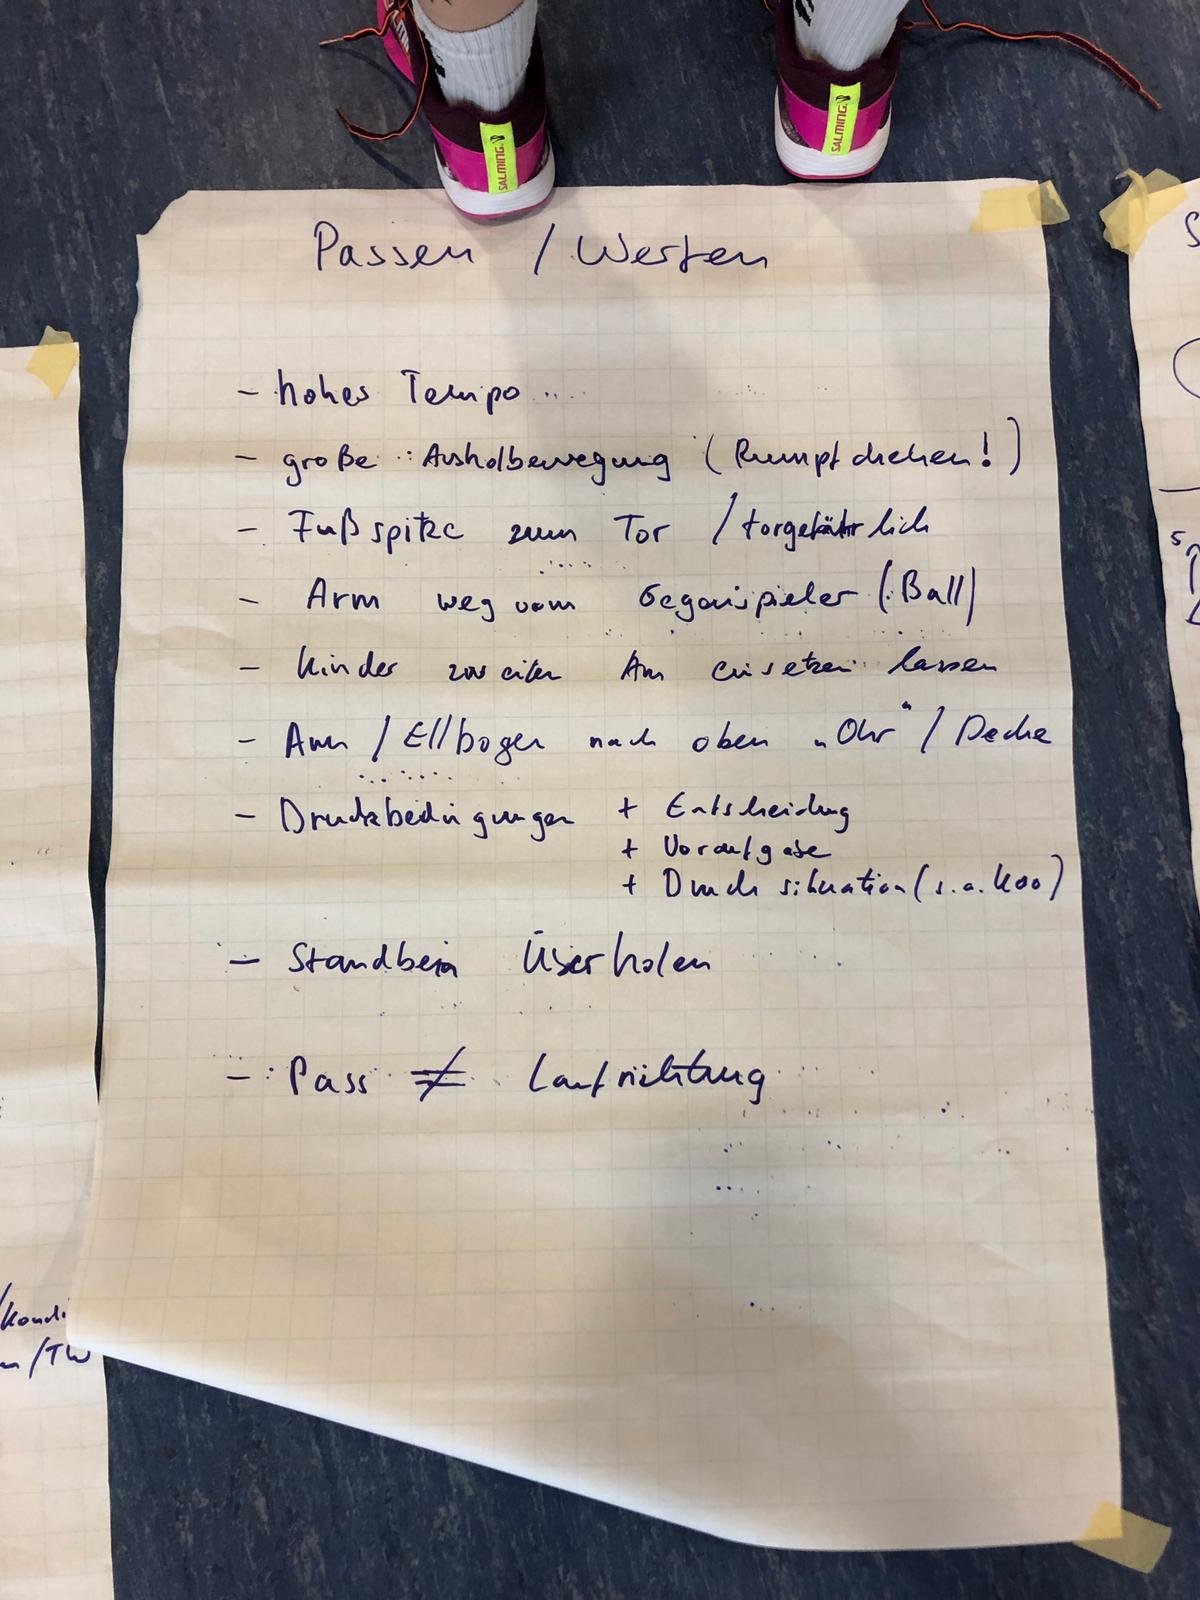 SALMING
SALMING
Passen / Werfen
- hohes Tempo
- große Ausholbewegung (Rumpf drehen!)
- Fußspitze zum Tor / torgefährlich
- Arm weg vom Gegenspieler (Ball)
- Kinder zweiten Arm einsetzen lassen
- Arm / Ellbogen nach oben „Ohr“ / Decke
- Druckbedingungen + Entscheidung
+ Voraufgabe
+ Drucksituation (s.a. Koo)
- Standbein Überholen
- Pass ≠ Laufrichtung
/kondi
/TW
S
5